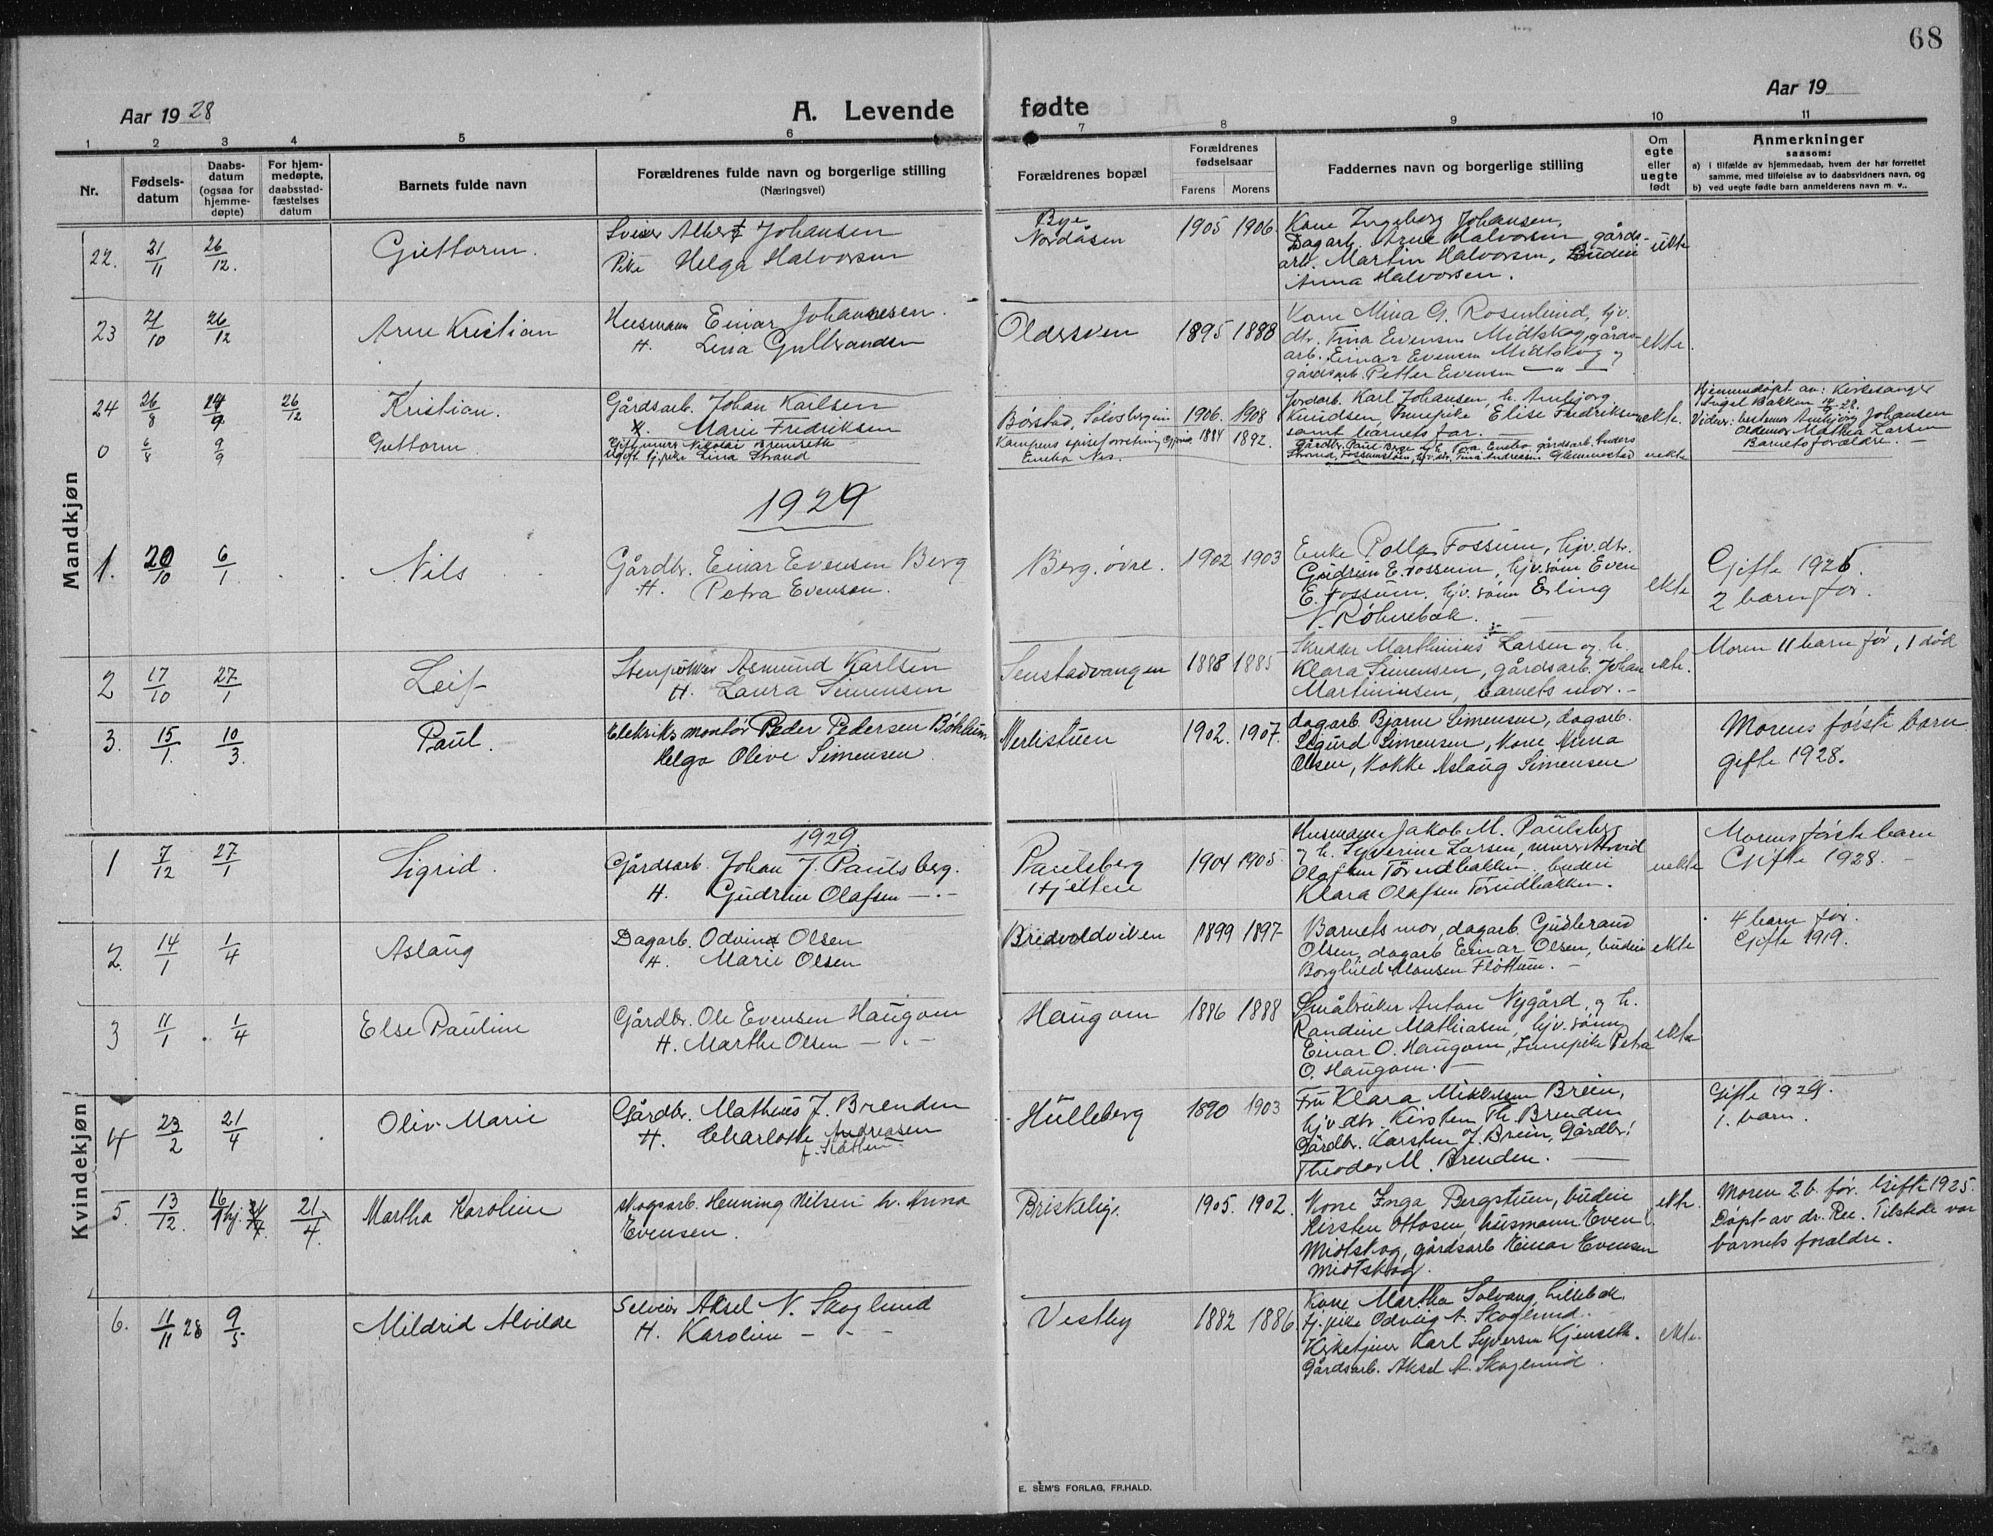 68
Aar 1928
A. Levende
fødte
Aar 19
1 2 3 4 5 6 7 8 9 10 11
Nr.
Fødsels-
datum
Daabs-
datum
(ogsaa for
hjemme-
døpte)
For hjem-
medøpte,
daabsstad-
fæstelses
datum
Barnets fulde navn
Forældrenes fulde navn og borgerlige stilling
(Næringsvei)
Forældrenes bopæl
Forældrenes
fødselsaar
Farens
Morens
Faddernes navn og borgerlige stilling
Om
egte
eller
uegte
født
Anmerkninger
saasom:
a) i tilfælde av hjemmedaab, hvem der har forrettet
samme, med tilføielse av to daabsvidners navn, og
b) ved uegte fødte barn anmelderens navn m. v..
Mandkjøn
22. 21/11 26/12. Guttorm.
Sveiser Albert Johansen
Pike Helga Halvorsen
Bye
Nordåsen
1905 1906.
Kone Ingeborg Johansen,
Dagarb. Arne Halvorsen, gårds-
arb. Martin Halvorsen, Budeie
Anna Halvorsen.
uekte
23 21/10 26/12 Arne Kristian
Husmann Einar Johannesen.
H. Lena Gulbrandsen
Oldersven
1895 1888
Kone Mina G. Rosenlund, hjv.
dtr. Tina Evensen Midtskog, gårds
arb. Einar Evensen Midtskog og
gårdsarb. Petter Evensen — " —
ekte.
24 26/8 14/9 26/12 Kristian.
Gårdsarb. Johan Karlsen
H. Marie Fredriksen
1906. 1908
Jordarb. Karl Johansen, h. Annbjørg
Knudsen, Innepike Elise Fredriksen
samt barnets far. —
ekte.
Hjemmedøpt av: Kirkesanger
Ingel Bakken
Vidner: bestemor Annbjørg Johansen
Oldemor Mathea Larsen
Barnets foreldre. —
0 6/8 9/9 Guttorm
Lina Strand
1884 1892.
Eneba Nes.
uekte
1929
1. 20/10 6/1 Nils
Gårdbr. Einar Evensen Berg
H. Petra Evensen.
Berg, øvre.
1902 1903
Enke Polla Fossum, hjv. dtr.
Gudrun E. Fossum, hjv. søn Even
E. Fossum, hjv. sønn Erling
N. Røhnebæk.
ekte
Gifte 1925.
2 barn før.
2 17/10 27/1 Leif
Asmund Karlsen
H. Laura Simensen
Senstadvangen
1888 1885
Skredder Marthinius Larsen og h.
Klara Simensen, gårdsarb. Johan
Martiniusen, barnets mor. —
ekte.
Moren 11 barn før, 1 død
3. 15/1. 10/3 Paul.
Elektriks montør Peder Pedersen
Helga Olive Simensen
1902. 1907.
dagarb. Bjarne Simensen, dagarb.
Sigurd Simensen, Kone Anna
Olsen, Kokke Aslaug Simensen
Morens første barn.
gifte 1928.
Kvindekjøn
1929
1 7/12 27/1 Sigrid.
Gårdsarb. Johan J. Paulsberg.
H. Gudrun Olafsen — . —
Paulsberg
Hjellum
1904 1905.
Husmann Jakob M. Paulsberg
og h. Syverine Larsen, murer Arvid
Olafsen Torudbakken, budeie
Klara Olafsen Torudbakken.
uekte
Morens første barn
Gifte 1928. —
2. 14/1 1/4 Aslaug
Dagarb. Odvind Olsen
H. Marie Olsen
Bredvoldviken
1899 1897
Barnets mor, dagarb. Gudbrand
Olsen, dagarb. Einar Olsen, budeie
Borghild Monsen Fløttum. —
ekte
4 barn før.
Gifte 1919.
3 11/1 1/4 Else Pauline
Gårdbr. Ole Evensen Haugom
H. Marthe Olsen — . —
Haugom
1886 1888
Småbruker Anton Nygård, og h.
Randine Mathiasen, hjv. sønn
Einar O. Haugom, Innepike Petra
O. Haugom. —
ekte
4 23/2 21/4 Oliv Marie
Gårdbr. Mathæus J. Brenden
H. Charlotte Andreasen
Hulleberg
1890 1903
Fru Klara Mikkelsen Breien,
hjv. dtr. Kirsten Th. Brenden
Gårdbr. Karsten J. Breien, Gårdbr.
Theodor M. Brenden. —
Gifte 1929.
1. barn.
5. 13/12. 21/4. Martha Karoline
Skogsarb. Henning Nilsen h. Anna
Evensen.
Briskelig.
1905. 1902.
Kone Inga Bergstuen, budeie
Kirsten Ottosen, husmann Even
Midtskog, gårdsarb Einar Evensen
Midtskog.
ekte.
Moren 2 b. før. Gifte 1925.
Døpt av dr. Ree. Tilstede var
barnets foreldre.
6. 11/11 28 9/5 Mildrid Alvilde
Aksel N. Skoglund
H. Karoline — . —
Vestby
1882 1886
Kone Martha Solvang, Lillebæk
Hj. pike Odveig A. Skoglund.
Kirketjener Karl Syversen Kjenseth.
Gårdsarb. Aksel A. Skoglund.
ekte.
E. SEM'S FORLAG, FR.HALD.